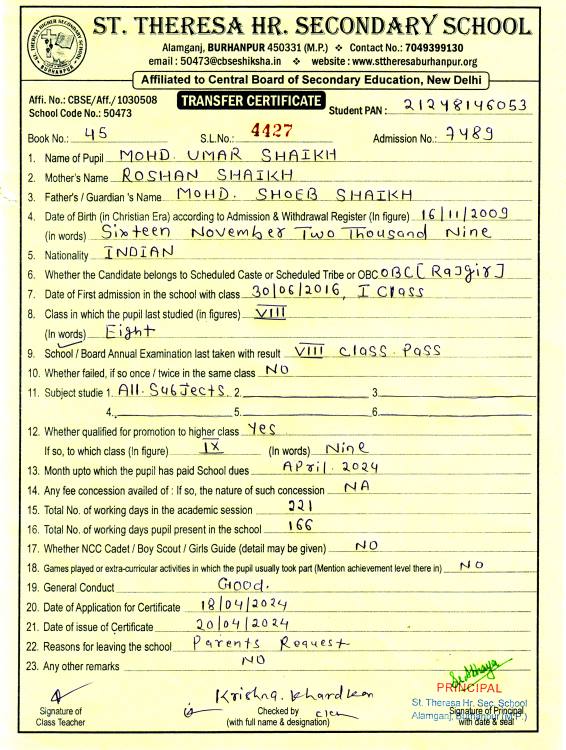 ST. THERESA HR. SECONDARY SCHOOL
Alamganj, BURHANPUR 450331 (M.P.) ❖ Contact No.: 7049399130
email : 50473@cbseshiksha.in ❖ website : www.sttheresaburhanpur.org
Affiliated to Central Board of Secondary Education, New Delhi
Affi. No.: CBSE/Aff./1030508
TRANSFER CERTIFICATE
Student PAN : 21248146053
School Code No.: 50473
Book No.: 45 S.L.No.: 4427 Admission No.: 7489
1. Name of Pupil MOHD. UMAR SHAIKH
2. Mother's Name ROSHAN SHAIKH
3. Father's / Guardian 's Name MOHD. SHOEB SHAIKH
4. Date of Birth (in Christian Era) according to Admission & Withdrawal Register (In figure) 16/11/2009
(in words) Sixteen November Two Thousand Nine
5. Nationality INDIAN
6. Whether the Candidate belongs to Scheduled Caste or Scheduled Tribe or OBC OBC [Rajgir]
7. Date of First admission in the school with class 30/06/2016, I Class
8. Class in which the pupil last studied (in figures) VIII
(In words) Eight
9. School / Board Annual Examination last taken with result VIII Class Pass
10. Whether failed, if so once / twice in the same class NO
11. Subject studie 1. All Subjects 2. 3.
4. 5. 6.
12. Whether qualified for promotion to higher class Yes
If so, to which class (In figure) IX (In words) Nine
13. Month upto which the pupil has paid School dues April. 2024
14. Any fee concession availed of : If so, the nature of such concession NA
15. Total No. of working days in the academic session 221
16. Total No. of working days pupil present in the school 166
17. Whether NCC Cadet / Boy Scout / Girls Guide (detail may be given) NO
18. Games played or extra-curricular activities in which the pupil usually took part (Mention achievement level there in) NO
19. General Conduct Good.
20. Date of Application for Certificate 18/04/2024
21. Date of issue of Certificate 20/04/2024
22. Reasons for leaving the school Parents Request
23. Any other remarks NO
PRINCIPAL
St. Theresa Hr. Sec. School
Alamganj, Burhanpur (M.P.)
Signature of
Class Teacher
Checked by
(with full name & designation)
Signature of Principal
with date & seal